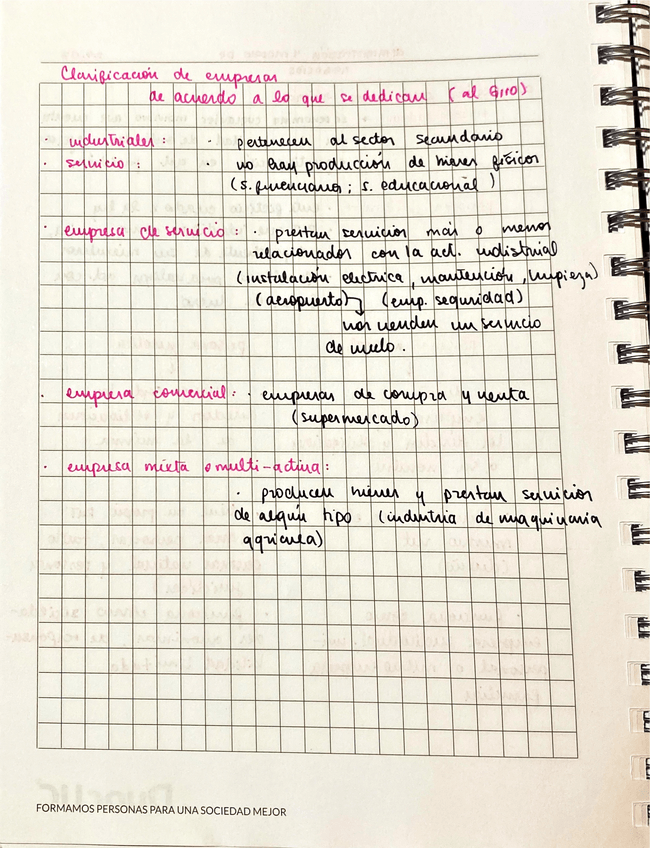 Clasificación de empresas
de acuerdo a lo que se dedican (al GIRO)
· industriales: · pertenecen al sector secundario
· servicio: · no hay producción de bienes físicos
(s. financiero; s. educacional)
· empresa de servicio: · prestan servicios más o menos
relacionados con la act. industrial
(instalación electrica, mantención, limpieza)
(aeropuerto) (emp. seguridad)
nos venden un servicio
de vuelo.
· empresa comercial: · empresas de compra y venta
(supermercado)
· empresa mixta o multi-activa:
· producen bienes y prestan servicios
de algún tipo (industria de maquinaria
agricola)
FORMAMOS PERSONAS PARA UNA SOCIEDAD MEJOR